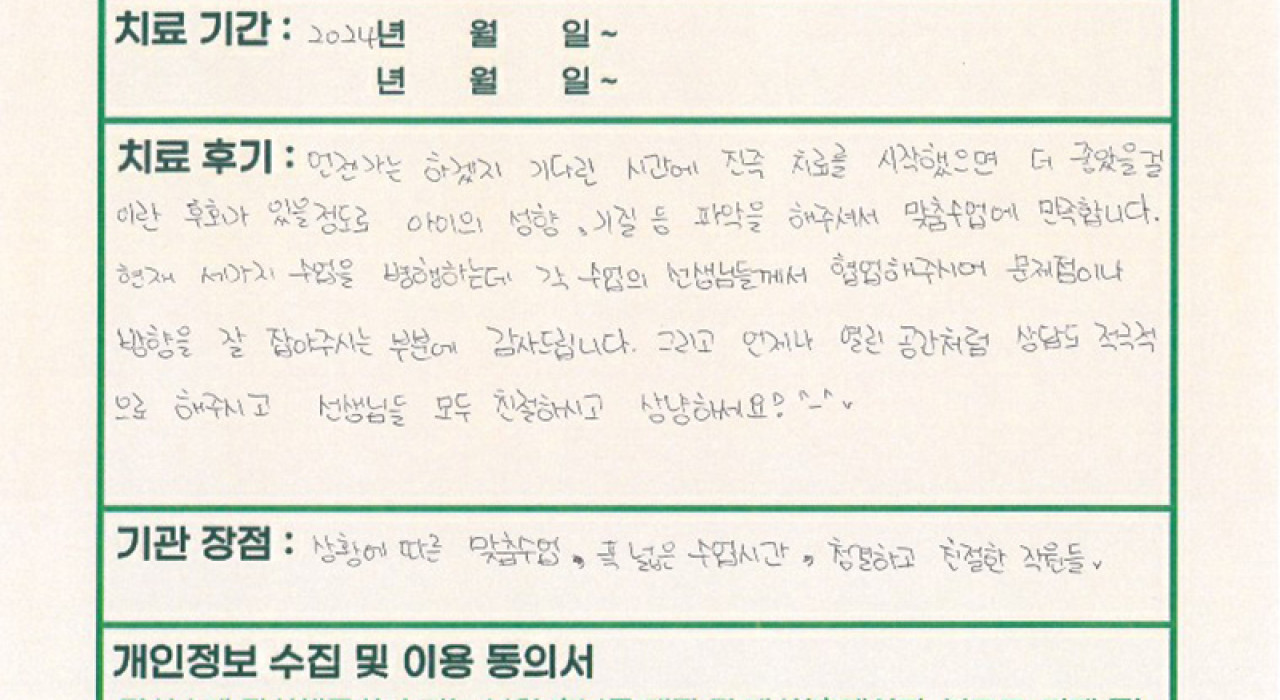 치료 기간 : 2024년 월 일 ~
년 월 일 ~
치료 후기 : 언젠가는 하겠지 기다린 시간에 진즉 치료를 시작했으면 더 좋았을걸
이란 후회가 있을정도로 아이의 성향, 기질 등 파악을 해주셔서 맞춤수업에 만족합니다.
현재 세가지 수업을 병행하는데 각 수업의 선생님들께서 협업해주시며 문제점이나
방향을 잘 잡아주시는 부분에 감사드립니다. 그리고 언제나 열린 공간처럼 상담도 적극적
으로 해주시고 선생님들 모두 친절하시고 상냥하세요? ^-^
기관 장점 : 상황에 따른 맞춤수업, 폭 넓은 수업시간, 청결하고 친절한 직원들.
개인정보 수집 및 이용 동의서